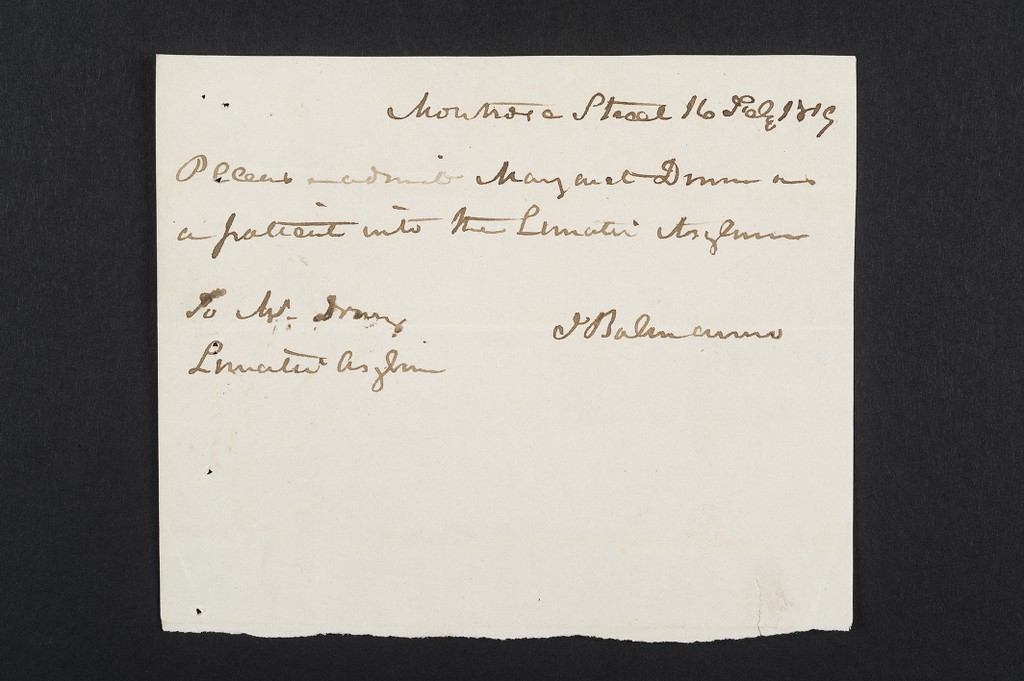 Montrose Street 16 July 1819
Please admit Margaret Dunn as
a patient into the Lunatic Asylum
To Mr. Drury
Lunatic Asylum
J Balmanno